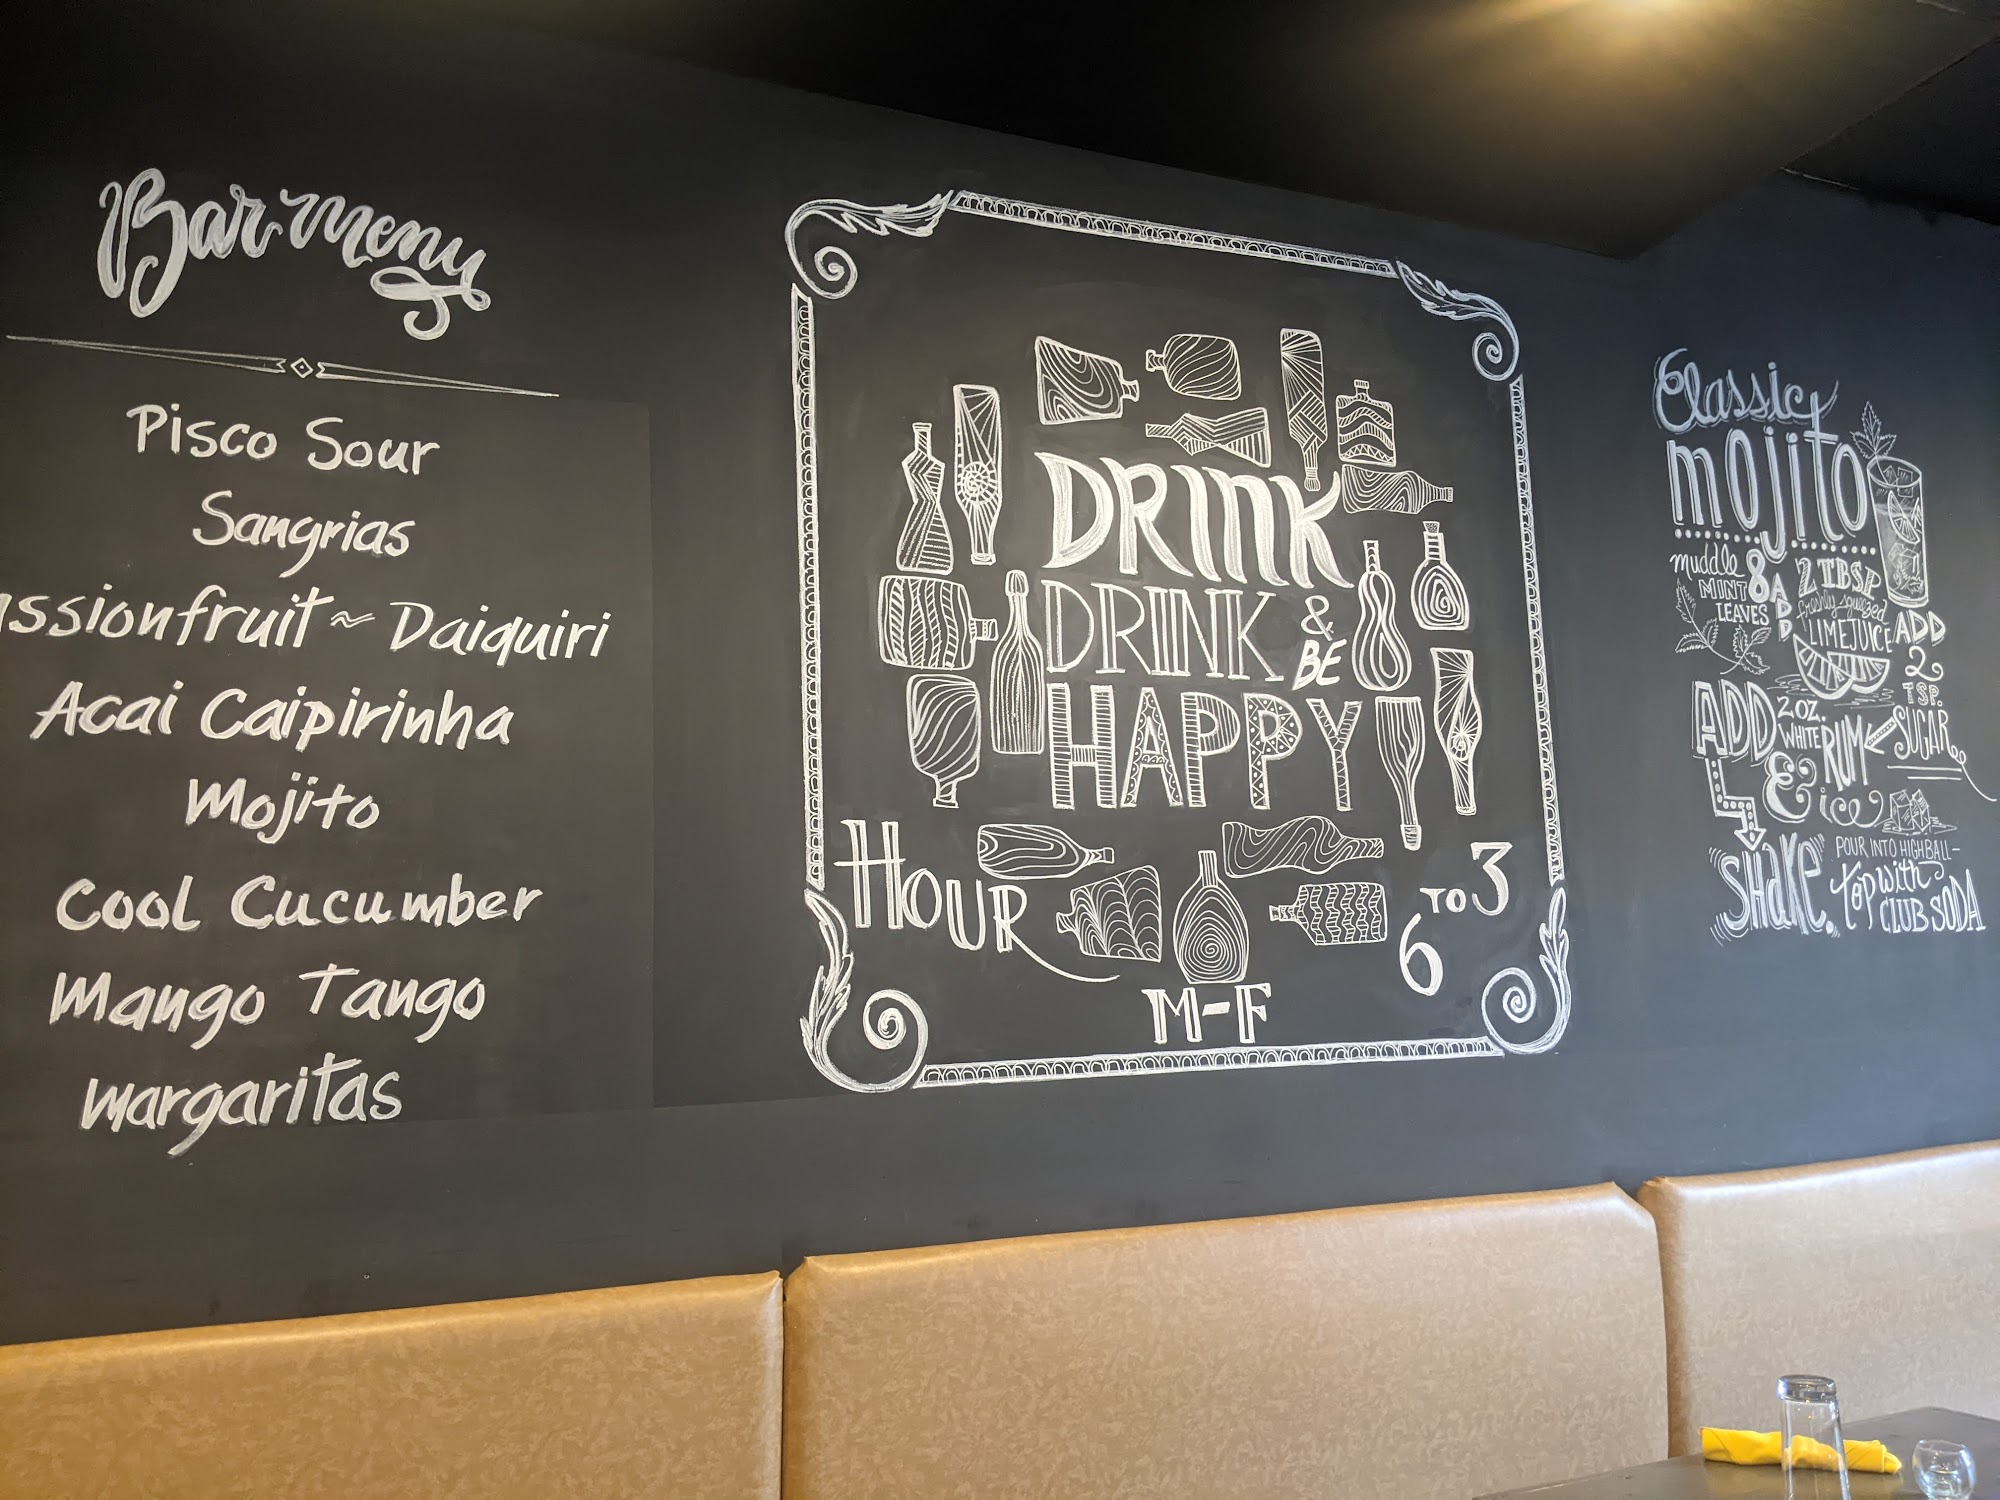 Bar Menu
Pisco Sour
Sangrias
assionfruit ~ Daiquiri
Acai Caipirinha
Mojito
Cool Cucumber
Mango Tango
Margaritas
DRINK
DRINK &
BE
HAPPY
HOUR
6 TO 3
M-F
Classic
mojito
muddle 8
MINT
LEAVES
ADD
2 TBSP
freshly squeezed
LIME JUICE
ADD
2
TSP.
SUGAR
ADD
2 OZ.
WHITE RUM
& ice
SHAKE.
POUR INTO HIGHBALL-
top with
CLUB SODA